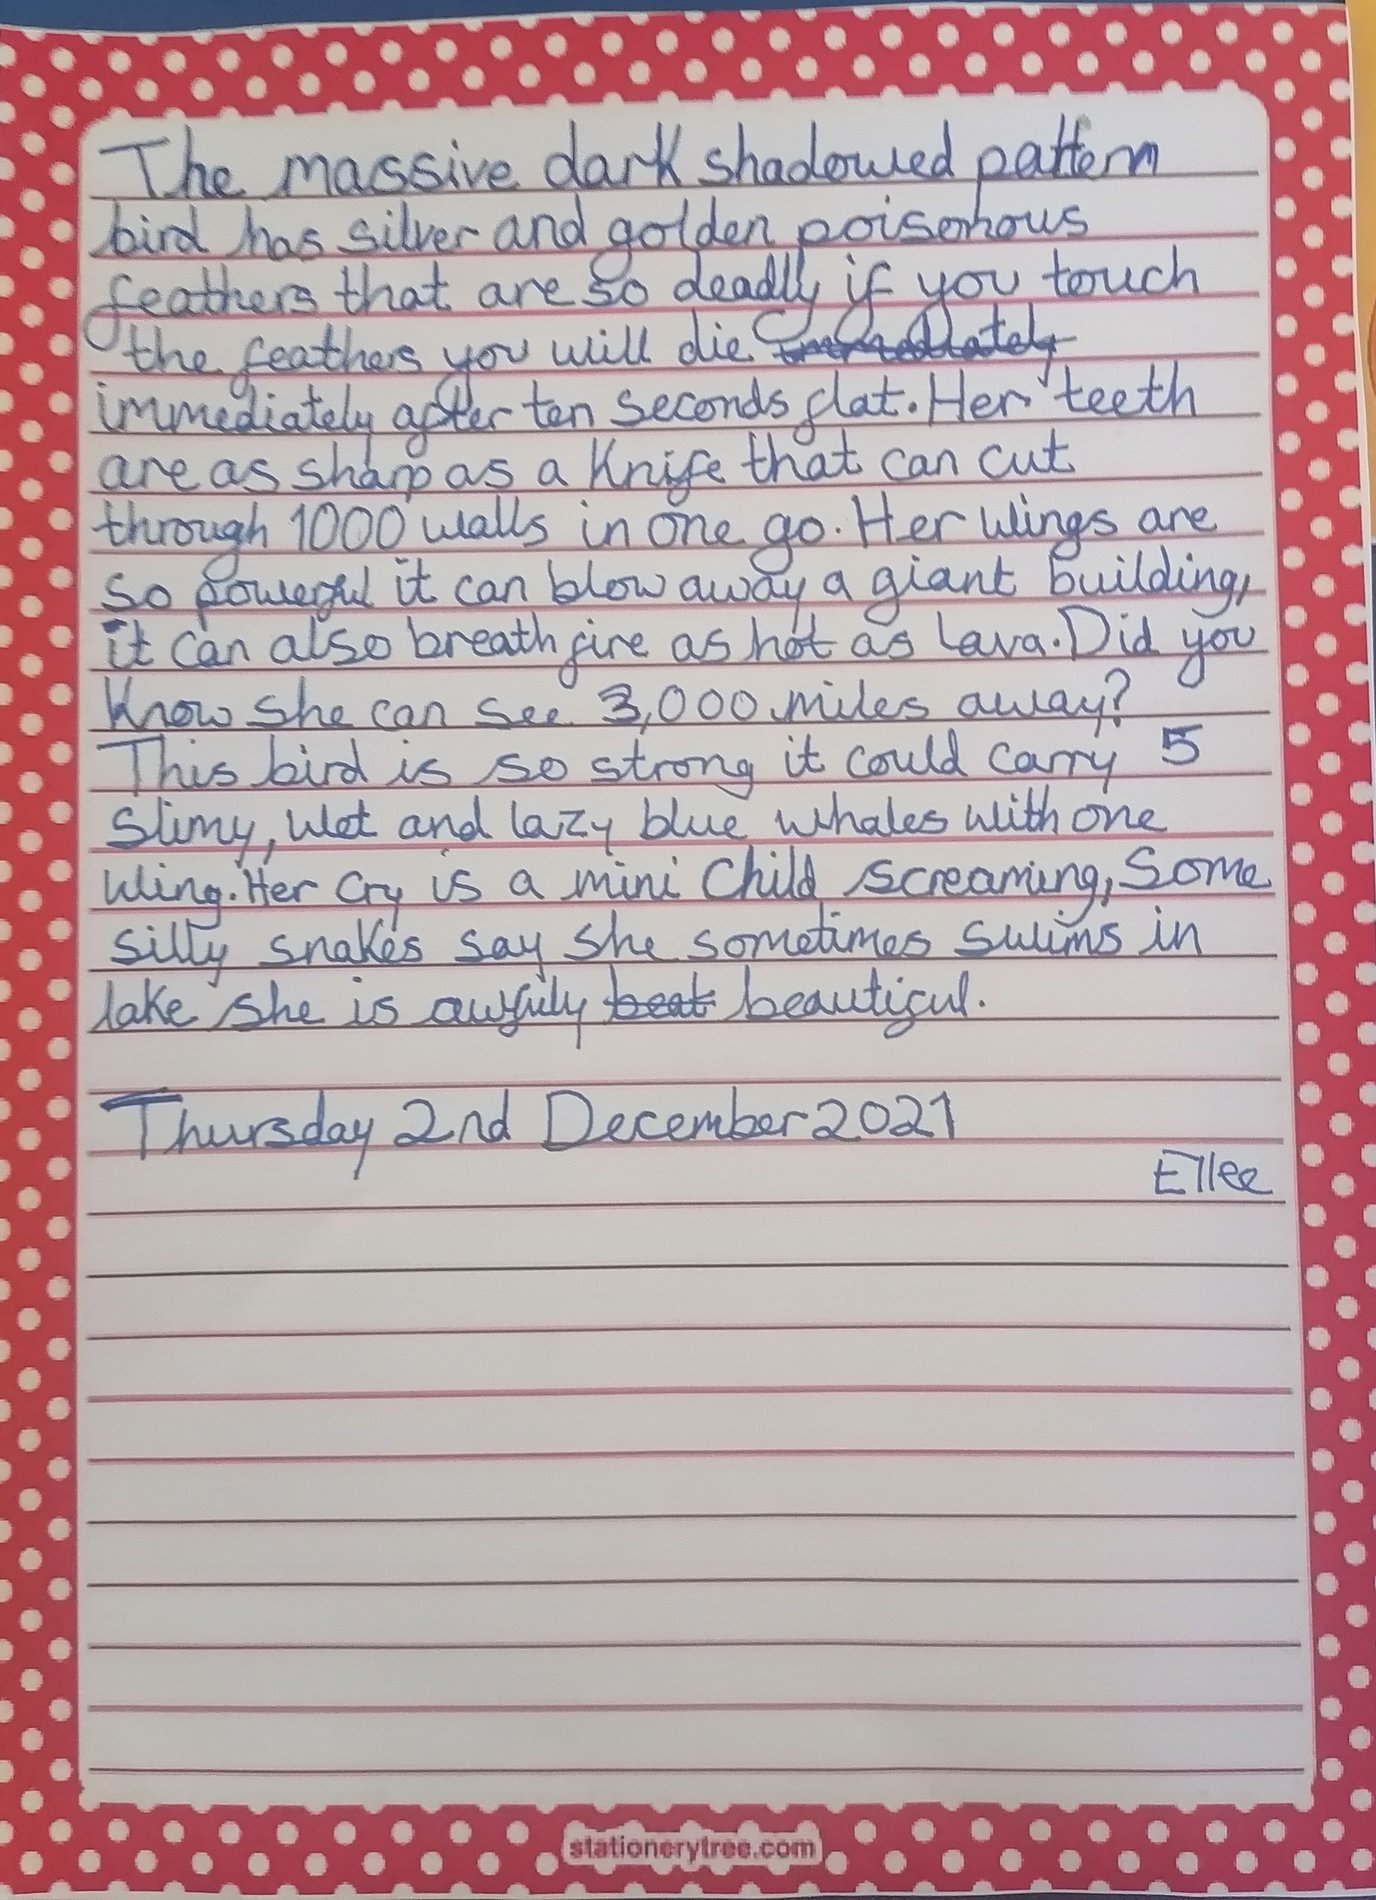 The massive dark shadowed pattern
bird has silver and golden poisonous
feathers that are so deadly if you touch
the feathers you will die immediately
immediately after ten seconds flat. Her teeth
are as sharp as a knife that can cut
through 1000 walls in one go. Her wings are
so powerful it can blow away a giant building,
it can also breath fire as hot as lava. Did you
know she can see 3,000 miles away?
This bird is so strong it could carry 5
slimy, wet and lazy blue whales with one
wing. Her cry is a mini child screaming, some
silly snakes say she sometimes swims in
lake she is awfuly beat beautiful.
Thursday 2nd December 2021
Ellee
stationerytree.com